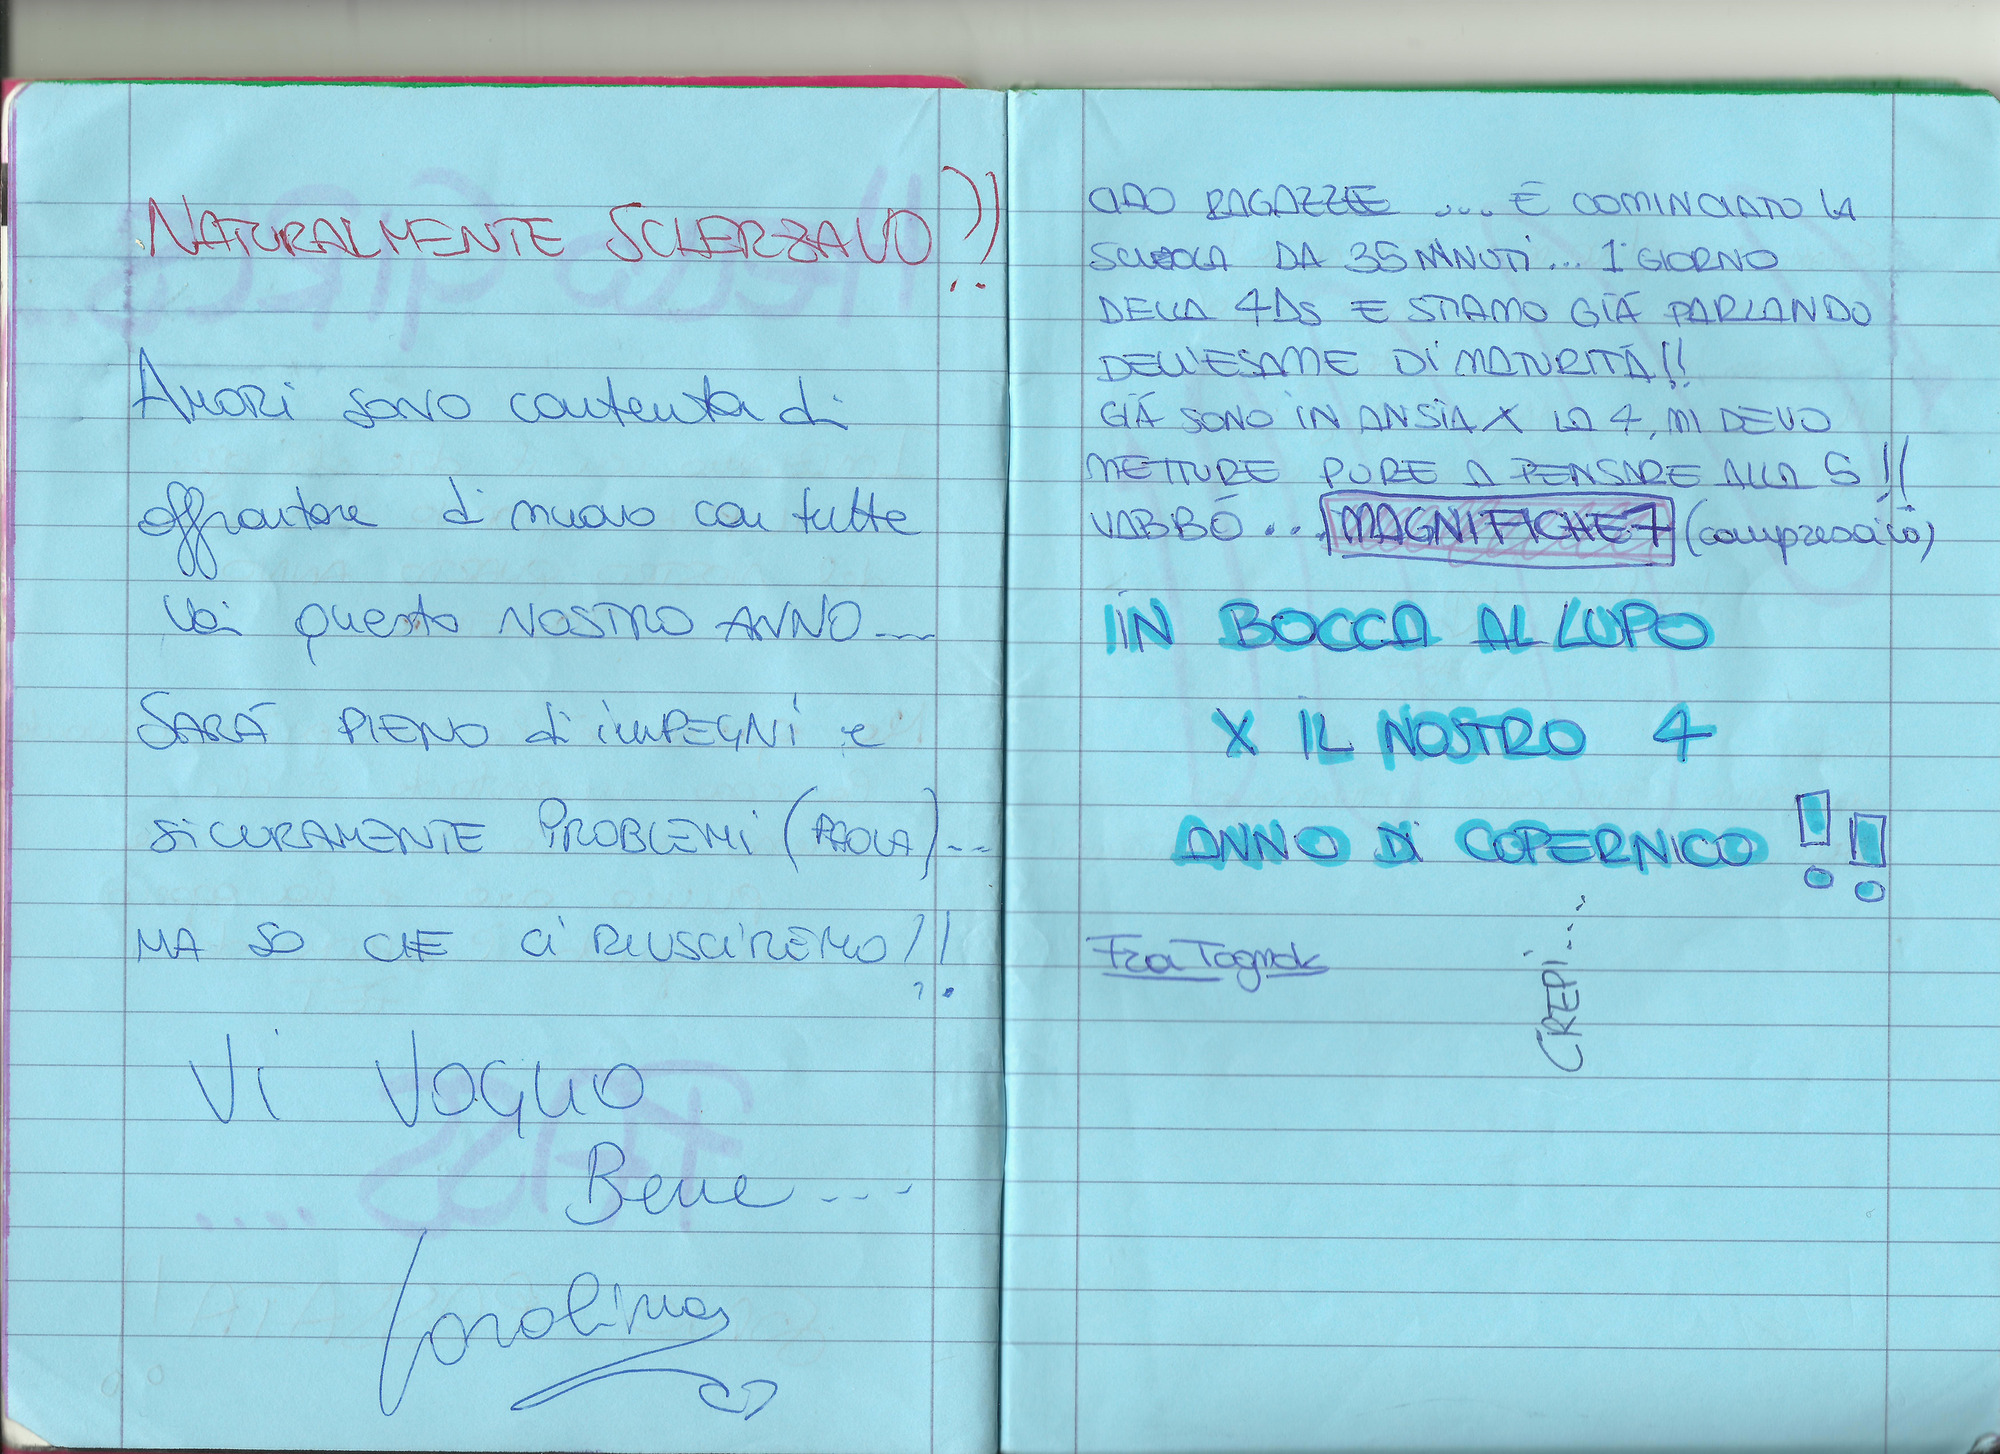 NATURALMENTE SCHERZAVO!!
AMORI SONO contenta di
affrontare di nuovo con tutte
Voi questo NOSTRO ANNO....
SARÀ PIENO di imPEGNi e
SiCURAMENTE PROBLEMi (PAOLA)...
MA SO CHE Ci RiUSCiREMO!!
Vi VOGLiO
Bene...
Carolina
CIAO RAGAZZE .... È COMINCIATO LA
SCUOLA DA 35 MiNUTi... 1 GIORNO
DELLA 4DS E STIAMO GIÀ PARLANDO
DELL'ESAME Di MATURITÀ!!
GIÀ SONO iN ANSiA X LA 4, Mi DEVO
METTERE PURE A PENSARE ALLA 5!!
VABBÒ... MAGNIFICHE 7 (compresa io)
iN BOCCA AL LUPO
X IL NOSTRO 4
ANNO Di COPERNICO!!
Fra Tognok
CREPi....